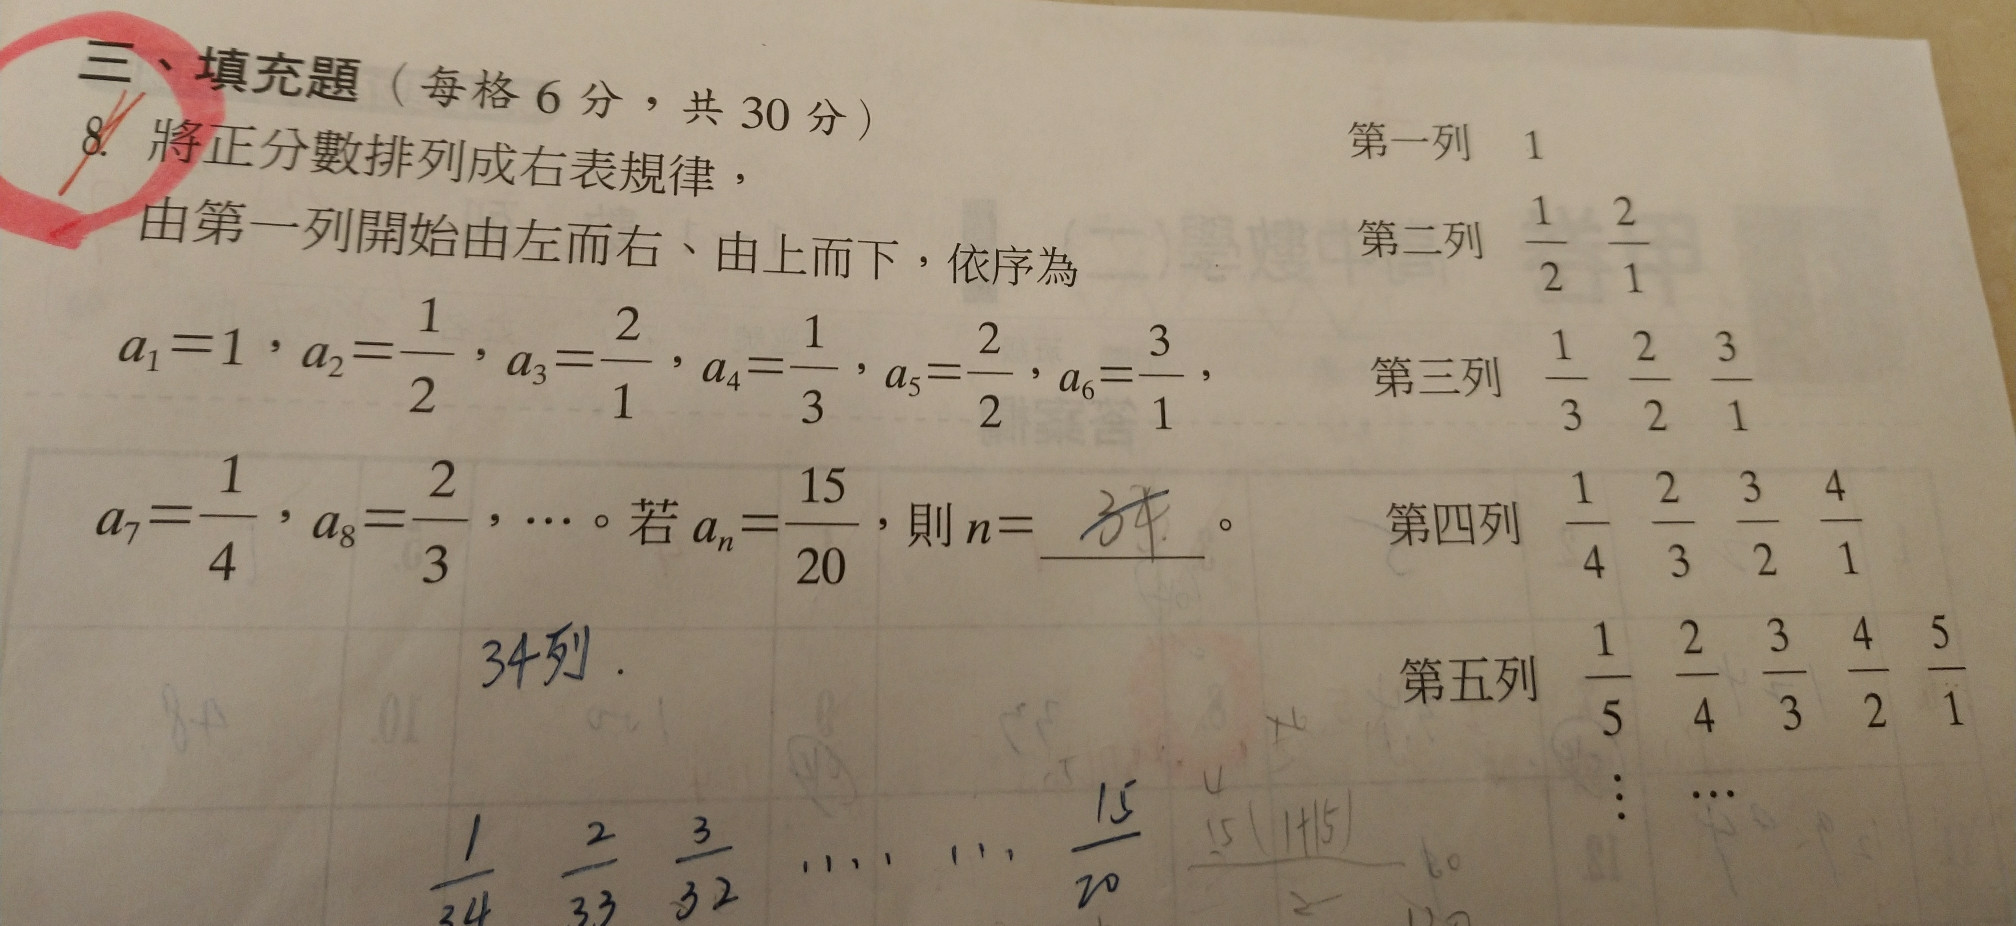 三、填充題（每格 6 分，共 30 分）
8. 將正分數排列成右表規律，
由第一列開始由左而右、由上而下，依序為
a₁＝1，a₂＝1/2，a₃＝2/1，a₄＝1/3，a₅＝2/2，a₆＝3/1，
a₇＝1/4，a₈＝2/3，…。若 aₙ＝15/20，則 n＝34。
第一列 1
第二列 1/2 2/1
第三列 1/3 2/2 3/1
第四列 1/4 2/3 3/2 4/1
第五列 1/5 2/4 3/3 4/2 5/1
⋮ …
34列.
1/34 2/33 3/32 ‥‥ … 15/20
15(1+15)/2